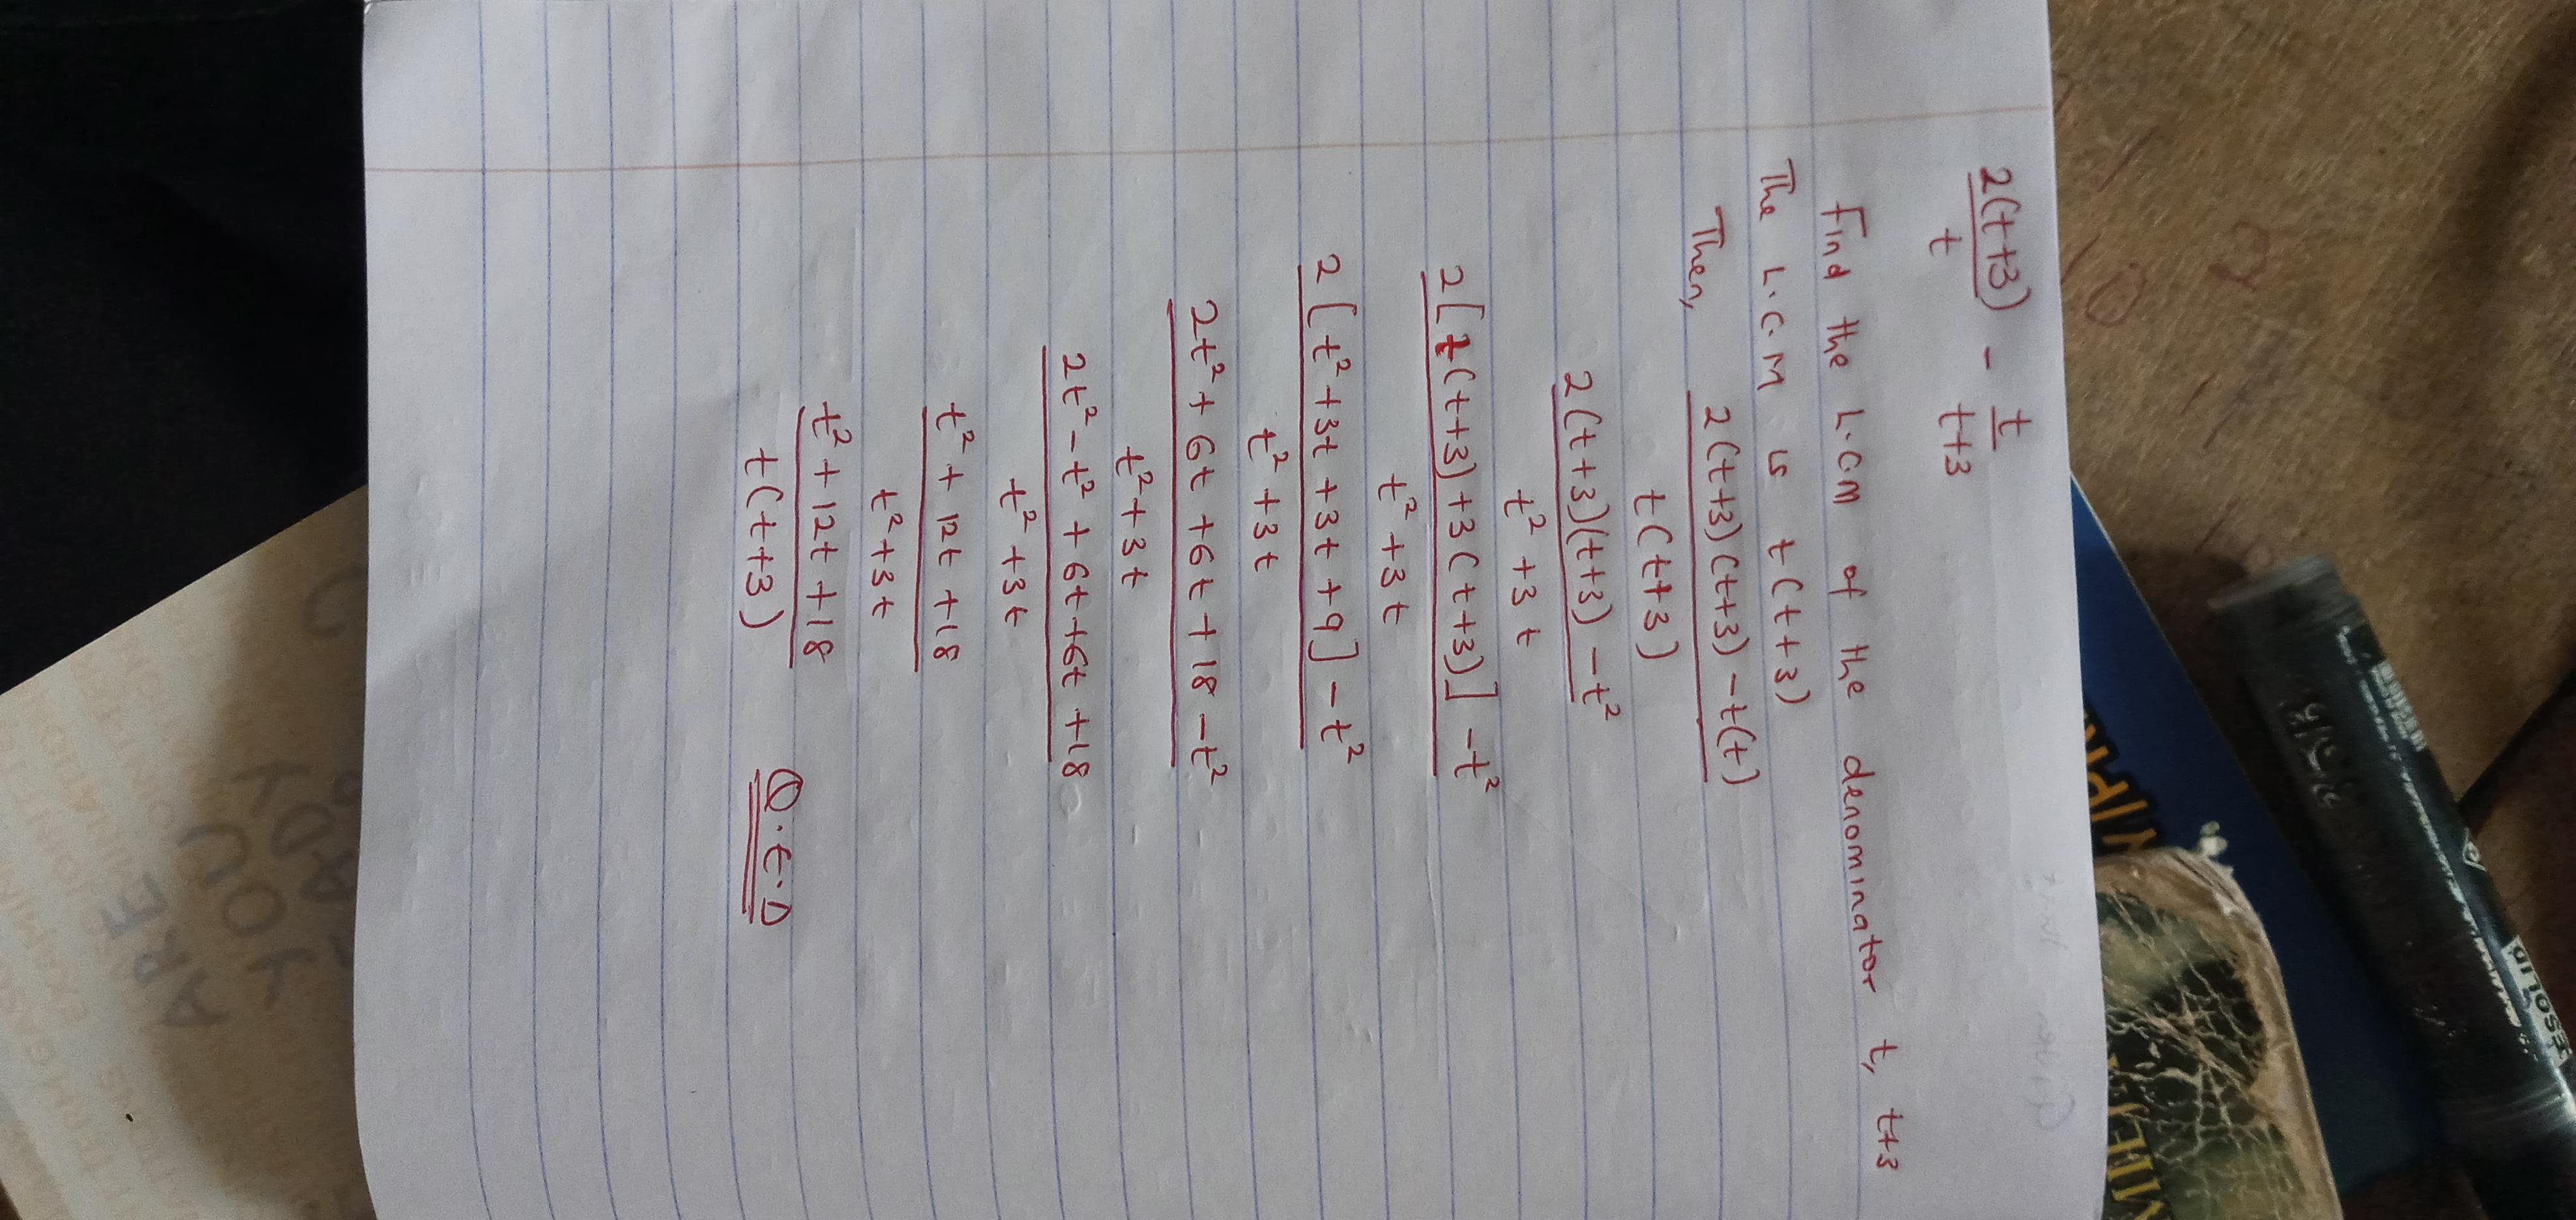 2(t+3)/t - t/t+3
Find the L.C.M of the denominator t, t+3
The L.C.M is t(t+3)
Then, 2(t+3)(t+3) - t(t)
t(t+3)
2(t+3)(t+3) - t²
t² + 3t
2[t(t+3) + 3(t+3)] - t²
t² + 3t
2[t² + 3t + 3t + 9] - t²
t² + 3t
2t² + 6t + 6t + 18 - t²
t² + 3t
2t² - t² + 6t + 6t + 18
t² + 3t
t² + 12t + 18
t² + 3t
t² + 12t + 18
t(t+3)
Q.E.D
ARE
YOU